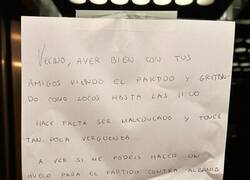 VECINO, AYER BIEN CON TUS
AMIGOS VIENDO EL PARTIDO Y GRITAN-
DO COMO LOCOS HASTA LAS 11:00
HACE FALTA SER MALEDUCADO Y TENER
TAN POCA VERGUENZA.
A VER SI ME PODEIS HACER UN
HUECO PARA EL PARTIDO CONTRA ALBANIA